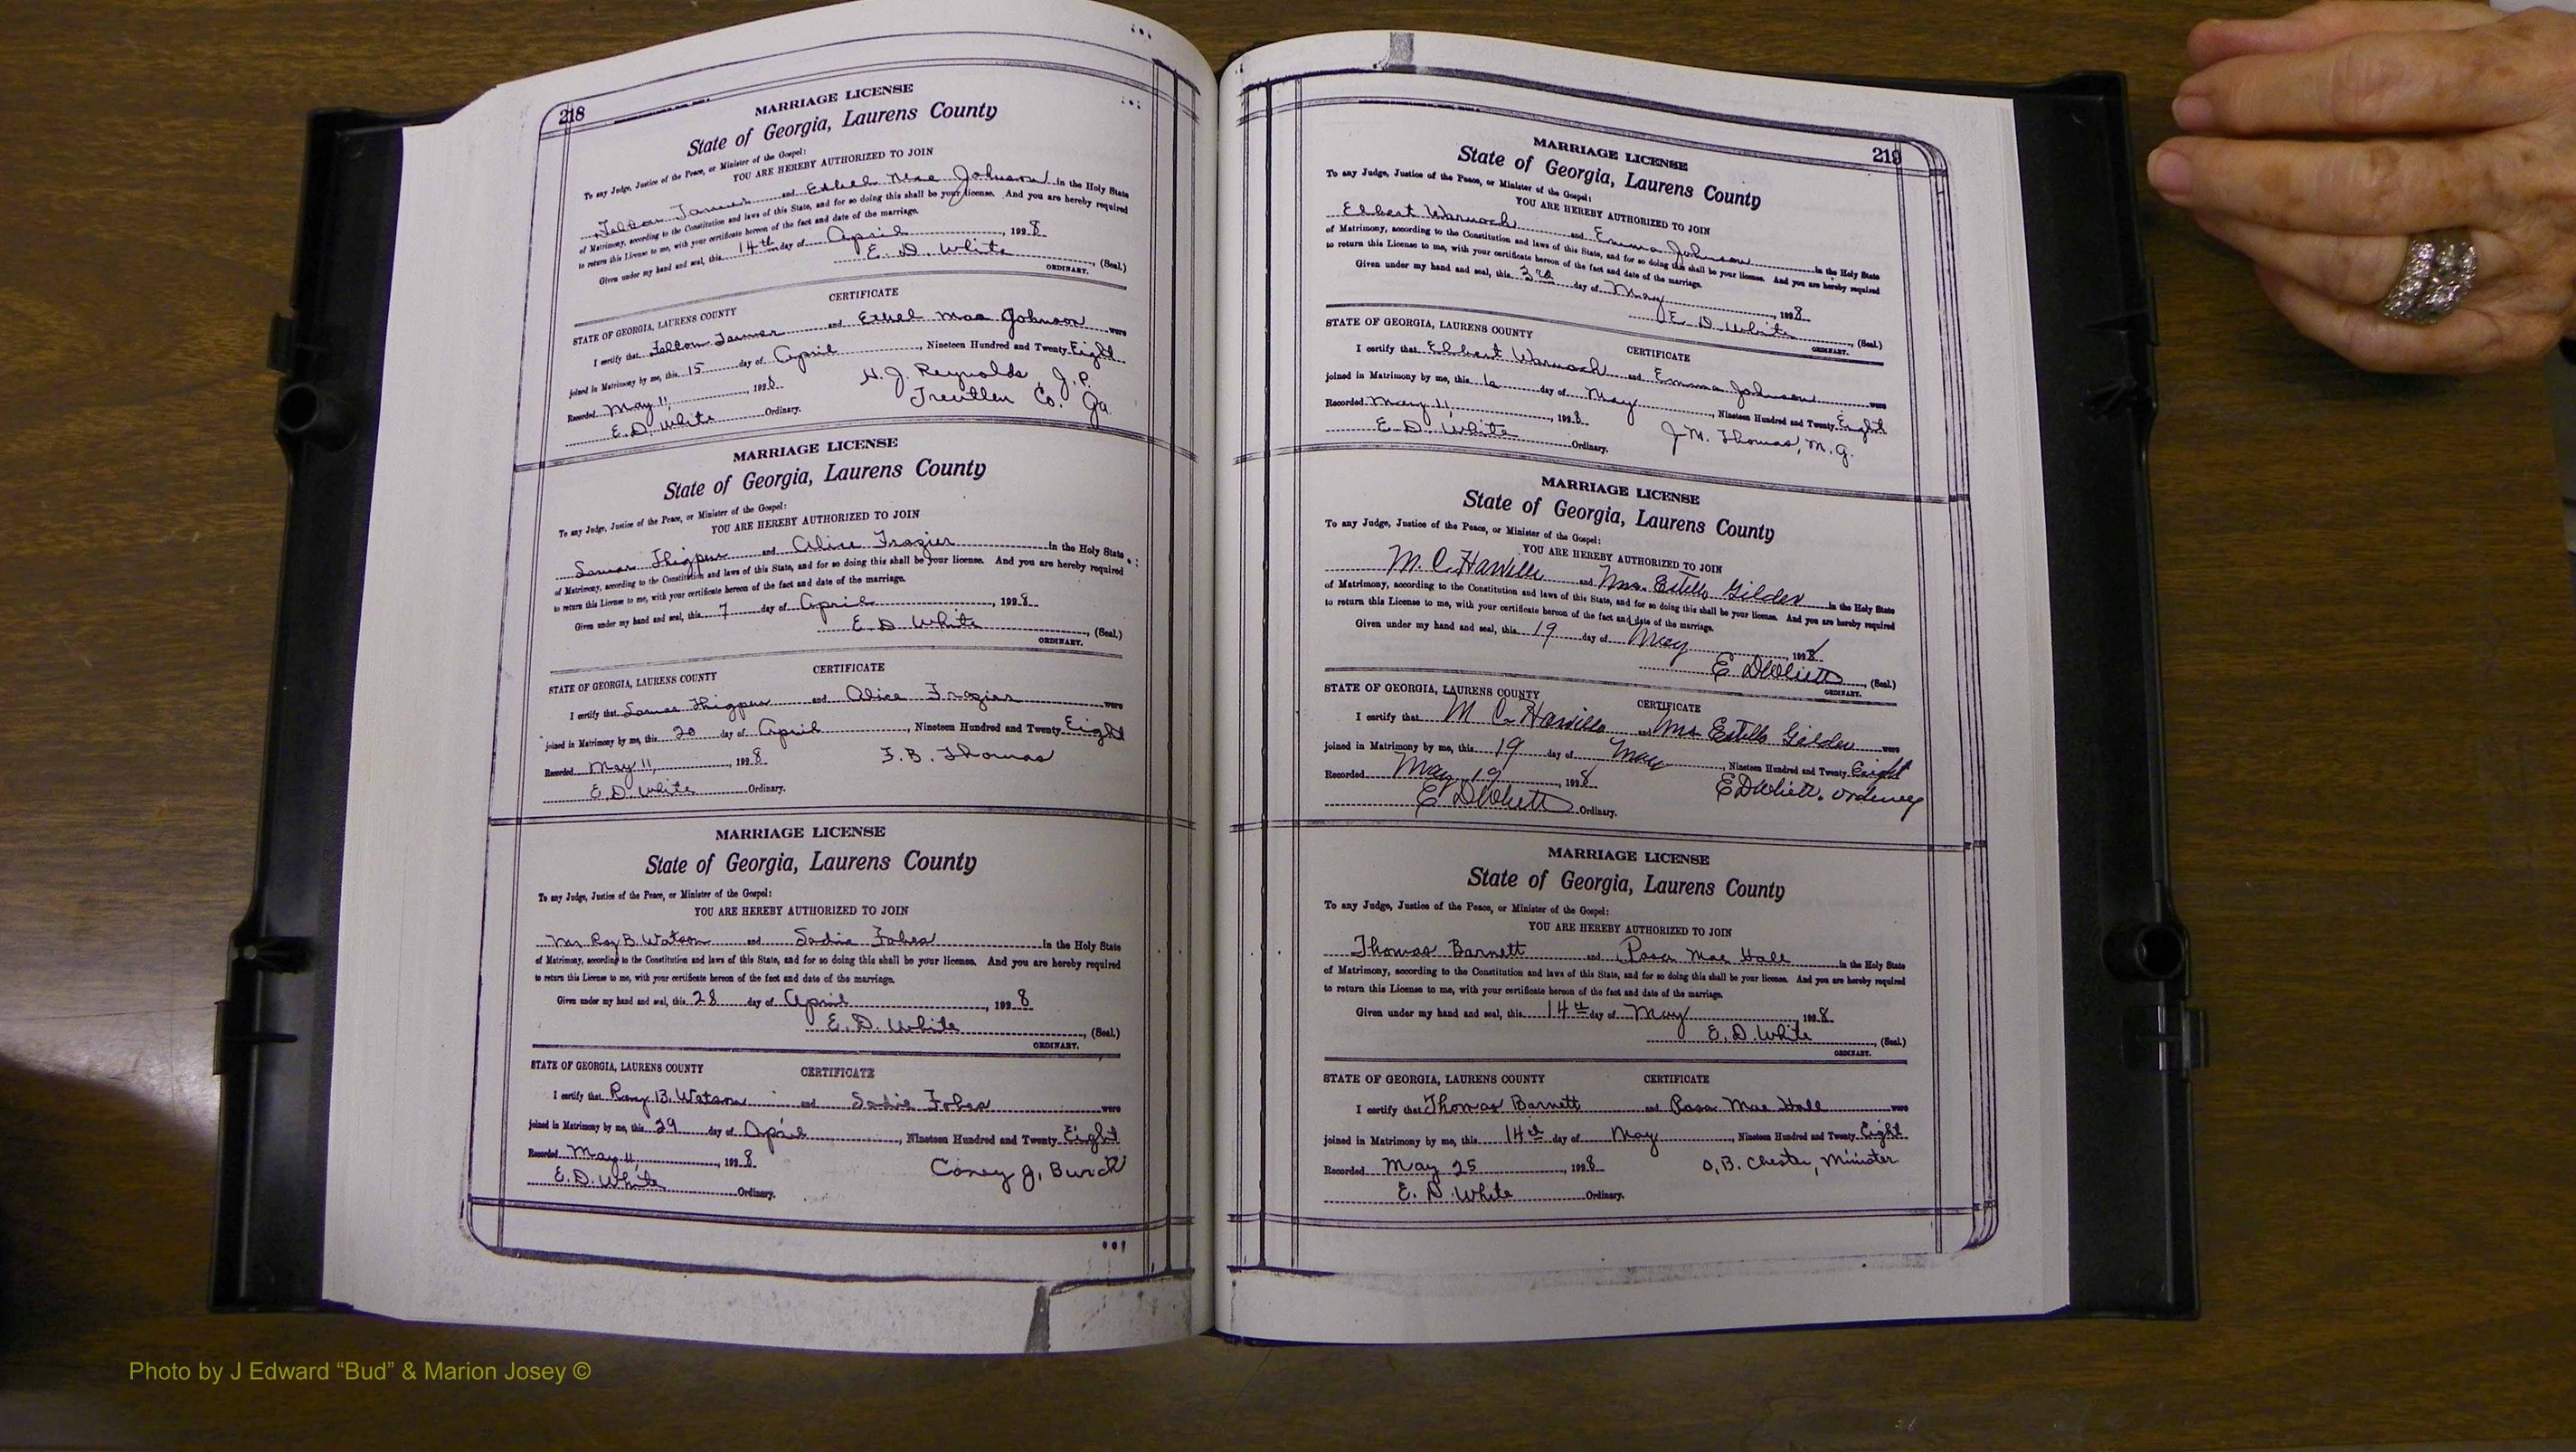 218
MARRIAGE LICENSE
State of Georgia, Laurens County
To any Judge, Justice of the Peace, or Minister of the Gospel:
YOU ARE HEREBY AUTHORIZED TO JOIN
and Ethel Mae Johnson in the Holy State
of Matrimony, according to the Constitution and laws of this State, and for so doing this shall be your license. And you are hereby required
to return this License to me, with your certificate hereon of the fact and date of the marriage.
Given under my hand and seal, this 14th day of April, 1928
E. D. White (Seal.)
ORDINARY.
CERTIFICATE
STATE OF GEORGIA, LAURENS COUNTY
I certify that and Ethel Mae Johnson were
joined in Matrimony by me, this 15 day of April, Nineteen Hundred and Twenty Eight
Recorded May 11, 1928 H. J. Reynolds J.P.
E. D. White Ordinary. Treutlen Co. Ga.
MARRIAGE LICENSE
State of Georgia, Laurens County
To any Judge, Justice of the Peace, or Minister of the Gospel:
YOU ARE HEREBY AUTHORIZED TO JOIN
Lamar Thigpen and Alice Frazier in the Holy State
of Matrimony, according to the Constitution and laws of this State, and for so doing this shall be your license. And you are hereby required
to return this License to me, with your certificate hereon of the fact and date of the marriage.
Given under my hand and seal, this 7 day of April, 1928
E. D. White (Seal.)
ORDINARY.
CERTIFICATE
STATE OF GEORGIA, LAURENS COUNTY
I certify that Lamar Thigpen and Alice Frazier were
joined in Matrimony by me, this 20 day of April, Nineteen Hundred and Twenty Eight
Recorded May 11, 1928 F. B. Thomas
E. D. White Ordinary.
MARRIAGE LICENSE
State of Georgia, Laurens County
To any Judge, Justice of the Peace, or Minister of the Gospel:
YOU ARE HEREBY AUTHORIZED TO JOIN
Mr Roy B. Watson and Sadie in the Holy State
of Matrimony, according to the Constitution and laws of this State, and for so doing this shall be your license. And you are hereby required
to return this License to me, with your certificate hereon of the fact and date of the marriage.
Given under my hand and seal, this 28 day of April, 1928
E. D. White (Seal.)
ORDINARY.
STATE OF GEORGIA, LAURENS COUNTY CERTIFICATE
I certify that Roy B. Watson and Sadie were
joined in Matrimony by me, this 29 day of April, Nineteen Hundred and Twenty Eight
Recorded May 11, 1928
E. D. White Ordinary.
219
MARRIAGE LICENSE
State of Georgia, Laurens County
To any Judge, Justice of the Peace, or Minister of the Gospel:
YOU ARE HEREBY AUTHORIZED TO JOIN
Elbert Warnock and Emma Johnson in the Holy State
of Matrimony, according to the Constitution and laws of this State, and for so doing this shall be your license. And you are hereby required
to return this License to me, with your certificate hereon of the fact and date of the marriage.
Given under my hand and seal, this 3rd day of May, 1928
E. D. White (Seal.)
ORDINARY.
STATE OF GEORGIA, LAURENS COUNTY CERTIFICATE
I certify that Elbert Warnock and Emma Johnson were
joined in Matrimony by me, this day of May, Nineteen Hundred and Twenty Eight
Recorded May 11, 1928 J. M. Thomas, M. G.
E. D. White Ordinary.
MARRIAGE LICENSE
State of Georgia, Laurens County
To any Judge, Justice of the Peace, or Minister of the Gospel:
YOU ARE HEREBY AUTHORIZED TO JOIN
M. C. and Mrs. Estelle Gilder in the Holy State
of Matrimony, according to the Constitution and laws of this State, and for so doing this shall be your license. And you are hereby required
to return this License to me, with your certificate hereon of the fact and date of the marriage.
Given under my hand and seal, this 19 day of May, 1928
E D White (Seal.)
ORDINARY.
STATE OF GEORGIA, LAURENS COUNTY CERTIFICATE
I certify that M. C. and Mrs Estelle Gilder were
joined in Matrimony by me, this 19 day of May, Nineteen Hundred and Twenty Eight
Recorded May 19, 1928 E D White. Ordinary
E D White Ordinary.
MARRIAGE LICENSE
State of Georgia, Laurens County
To any Judge, Justice of the Peace, or Minister of the Gospel:
YOU ARE HEREBY AUTHORIZED TO JOIN
Thomas Barnett and Rosa Mae Hall in the Holy State
of Matrimony, according to the Constitution and laws of this State, and for so doing this shall be your license. And you are hereby required
to return this License to me, with your certificate hereon of the fact and date of the marriage.
Given under my hand and seal, this 14th day of May, 1928
E. D. White (Seal.)
ORDINARY.
STATE OF GEORGIA, LAURENS COUNTY CERTIFICATE
I certify that Thomas Barnett and Rosa Mae Hall were
joined in Matrimony by me, this 14th day of May, Nineteen Hundred and Twenty Eight
Recorded May 25, 1928 O. B. Chester, Minister
E. D. White Ordinary.
Photo by J Edward “Bud” & Marion Josey ©